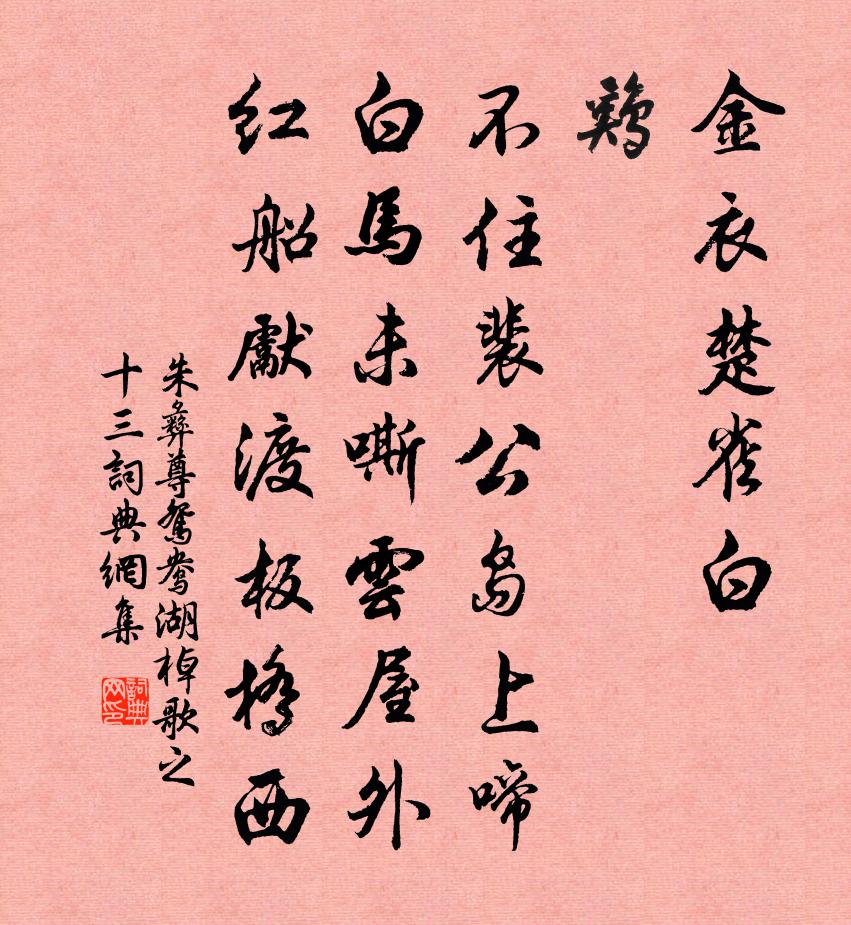 金衣楚雀白
鷄
不住裴公島上啼
白馬未嘶雲屋外
紅船獻渡板橋西
朱彝尊鴛鴦湖棹歌之
十三詞典網集
詞典网印